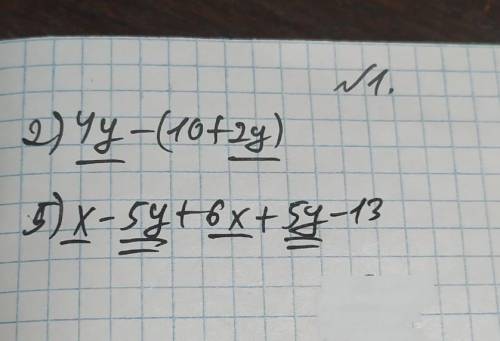 №1.
2) 4y-(10+2y)
5) x-5y+6x+5y-13